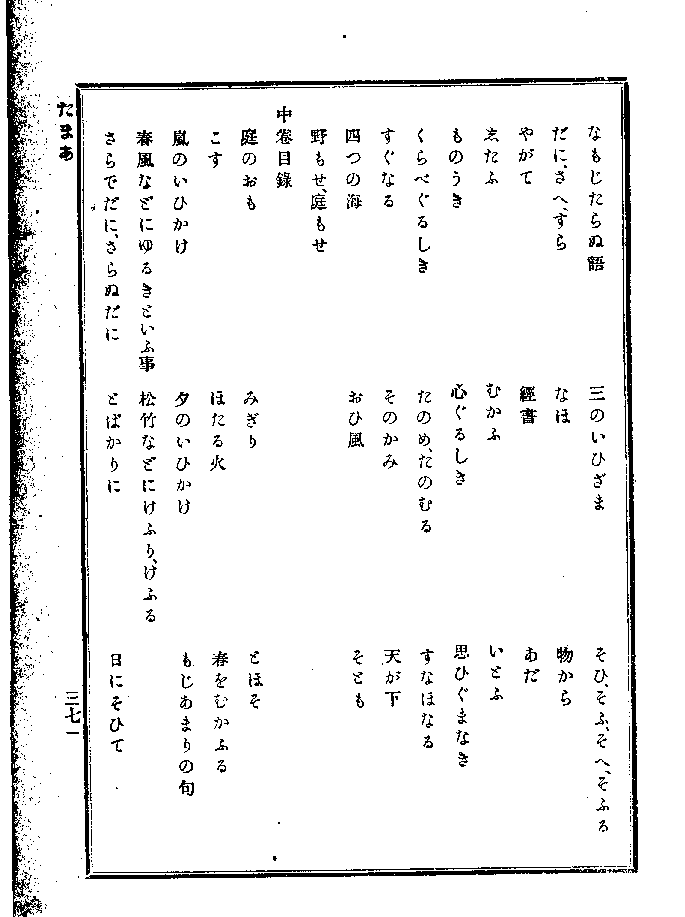 なもじたらぬ語　三のいひざま　そひ、そふ、そへ、そふる
だに、さへ、すら　なほ　物から
やがて　經書　あだ
ゑたふ　むかふ　いとふ
ものうき　心ぐるしき　思ひぐまなき
くらべぐるしき　たのめ、たのむる　すなほなる
すぐなる　そのかみ　天が下
四つの海　おひ風　そとも
野もせ、庭もせ
中卷目錄
庭のおも　みぎり　とほそ
こす　ほたる火　春をむかふる
嵐のいひかけ　夕のいひかけ　もじあまりの句
春風などにゆるきといふ事　松竹などにけふり、けふる
さらでだに、さらぬだに　とばかりに　日にそひて
たまあ
三七一